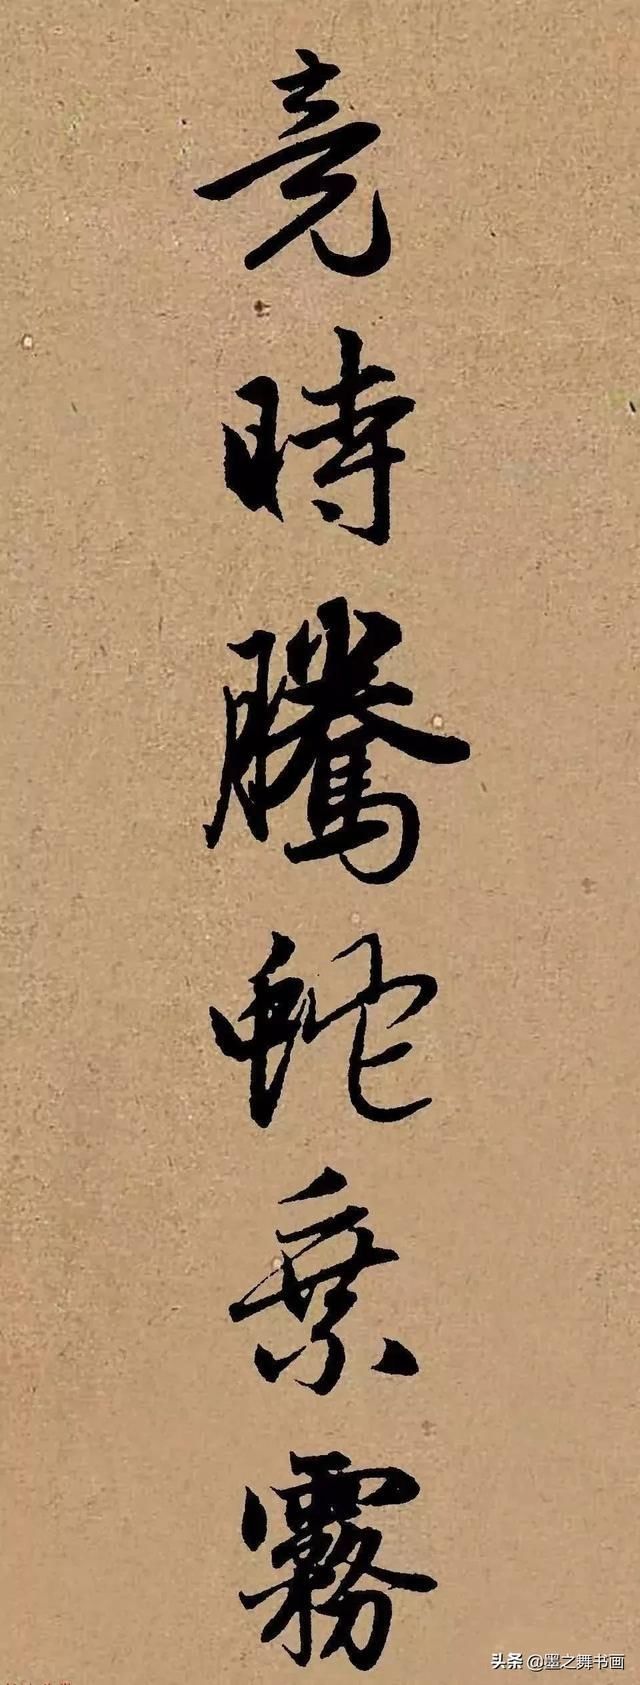 竟時騰蛇乗霧
头条 @墨之舞书画